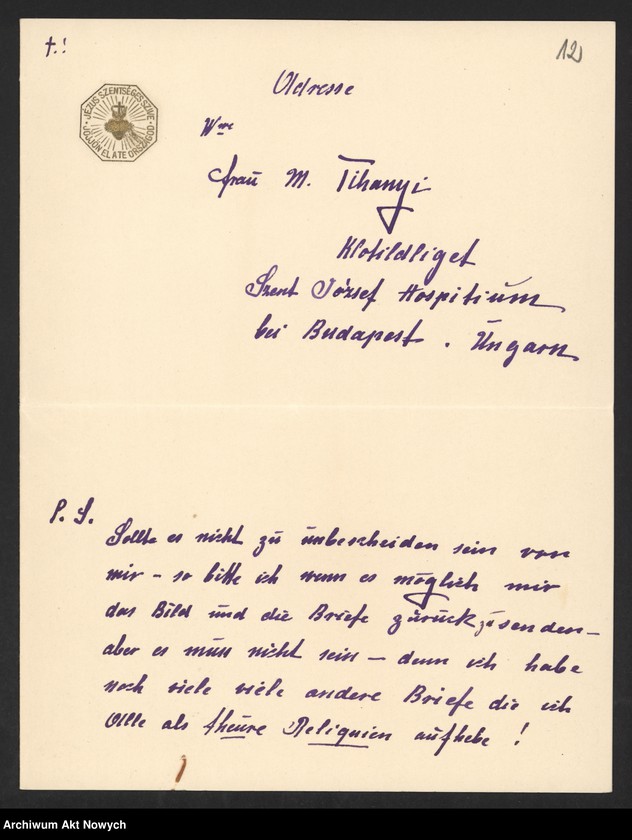 †.!
12)
JÉZUS SZENTSÉGES SZIVE
JÖJJÖN EL A TE ORSZÁGOD
Adresse
Wwe
Frau M. Tihanyi
Klotildliget
Szent József Hospitium
bei Budapest. Ungarn
P. S.
Sollte es nicht zu unbescheiden sein von
mir – so bitte ich wenn es möglich mir
das Bild und die Briefe zurückzusenden –
aber es muss nicht sein – denn ich habe
noch viele viele andere Briefe die ich
Alle als theure Reliquien aufhebe!
Archiwum Akt Nowych